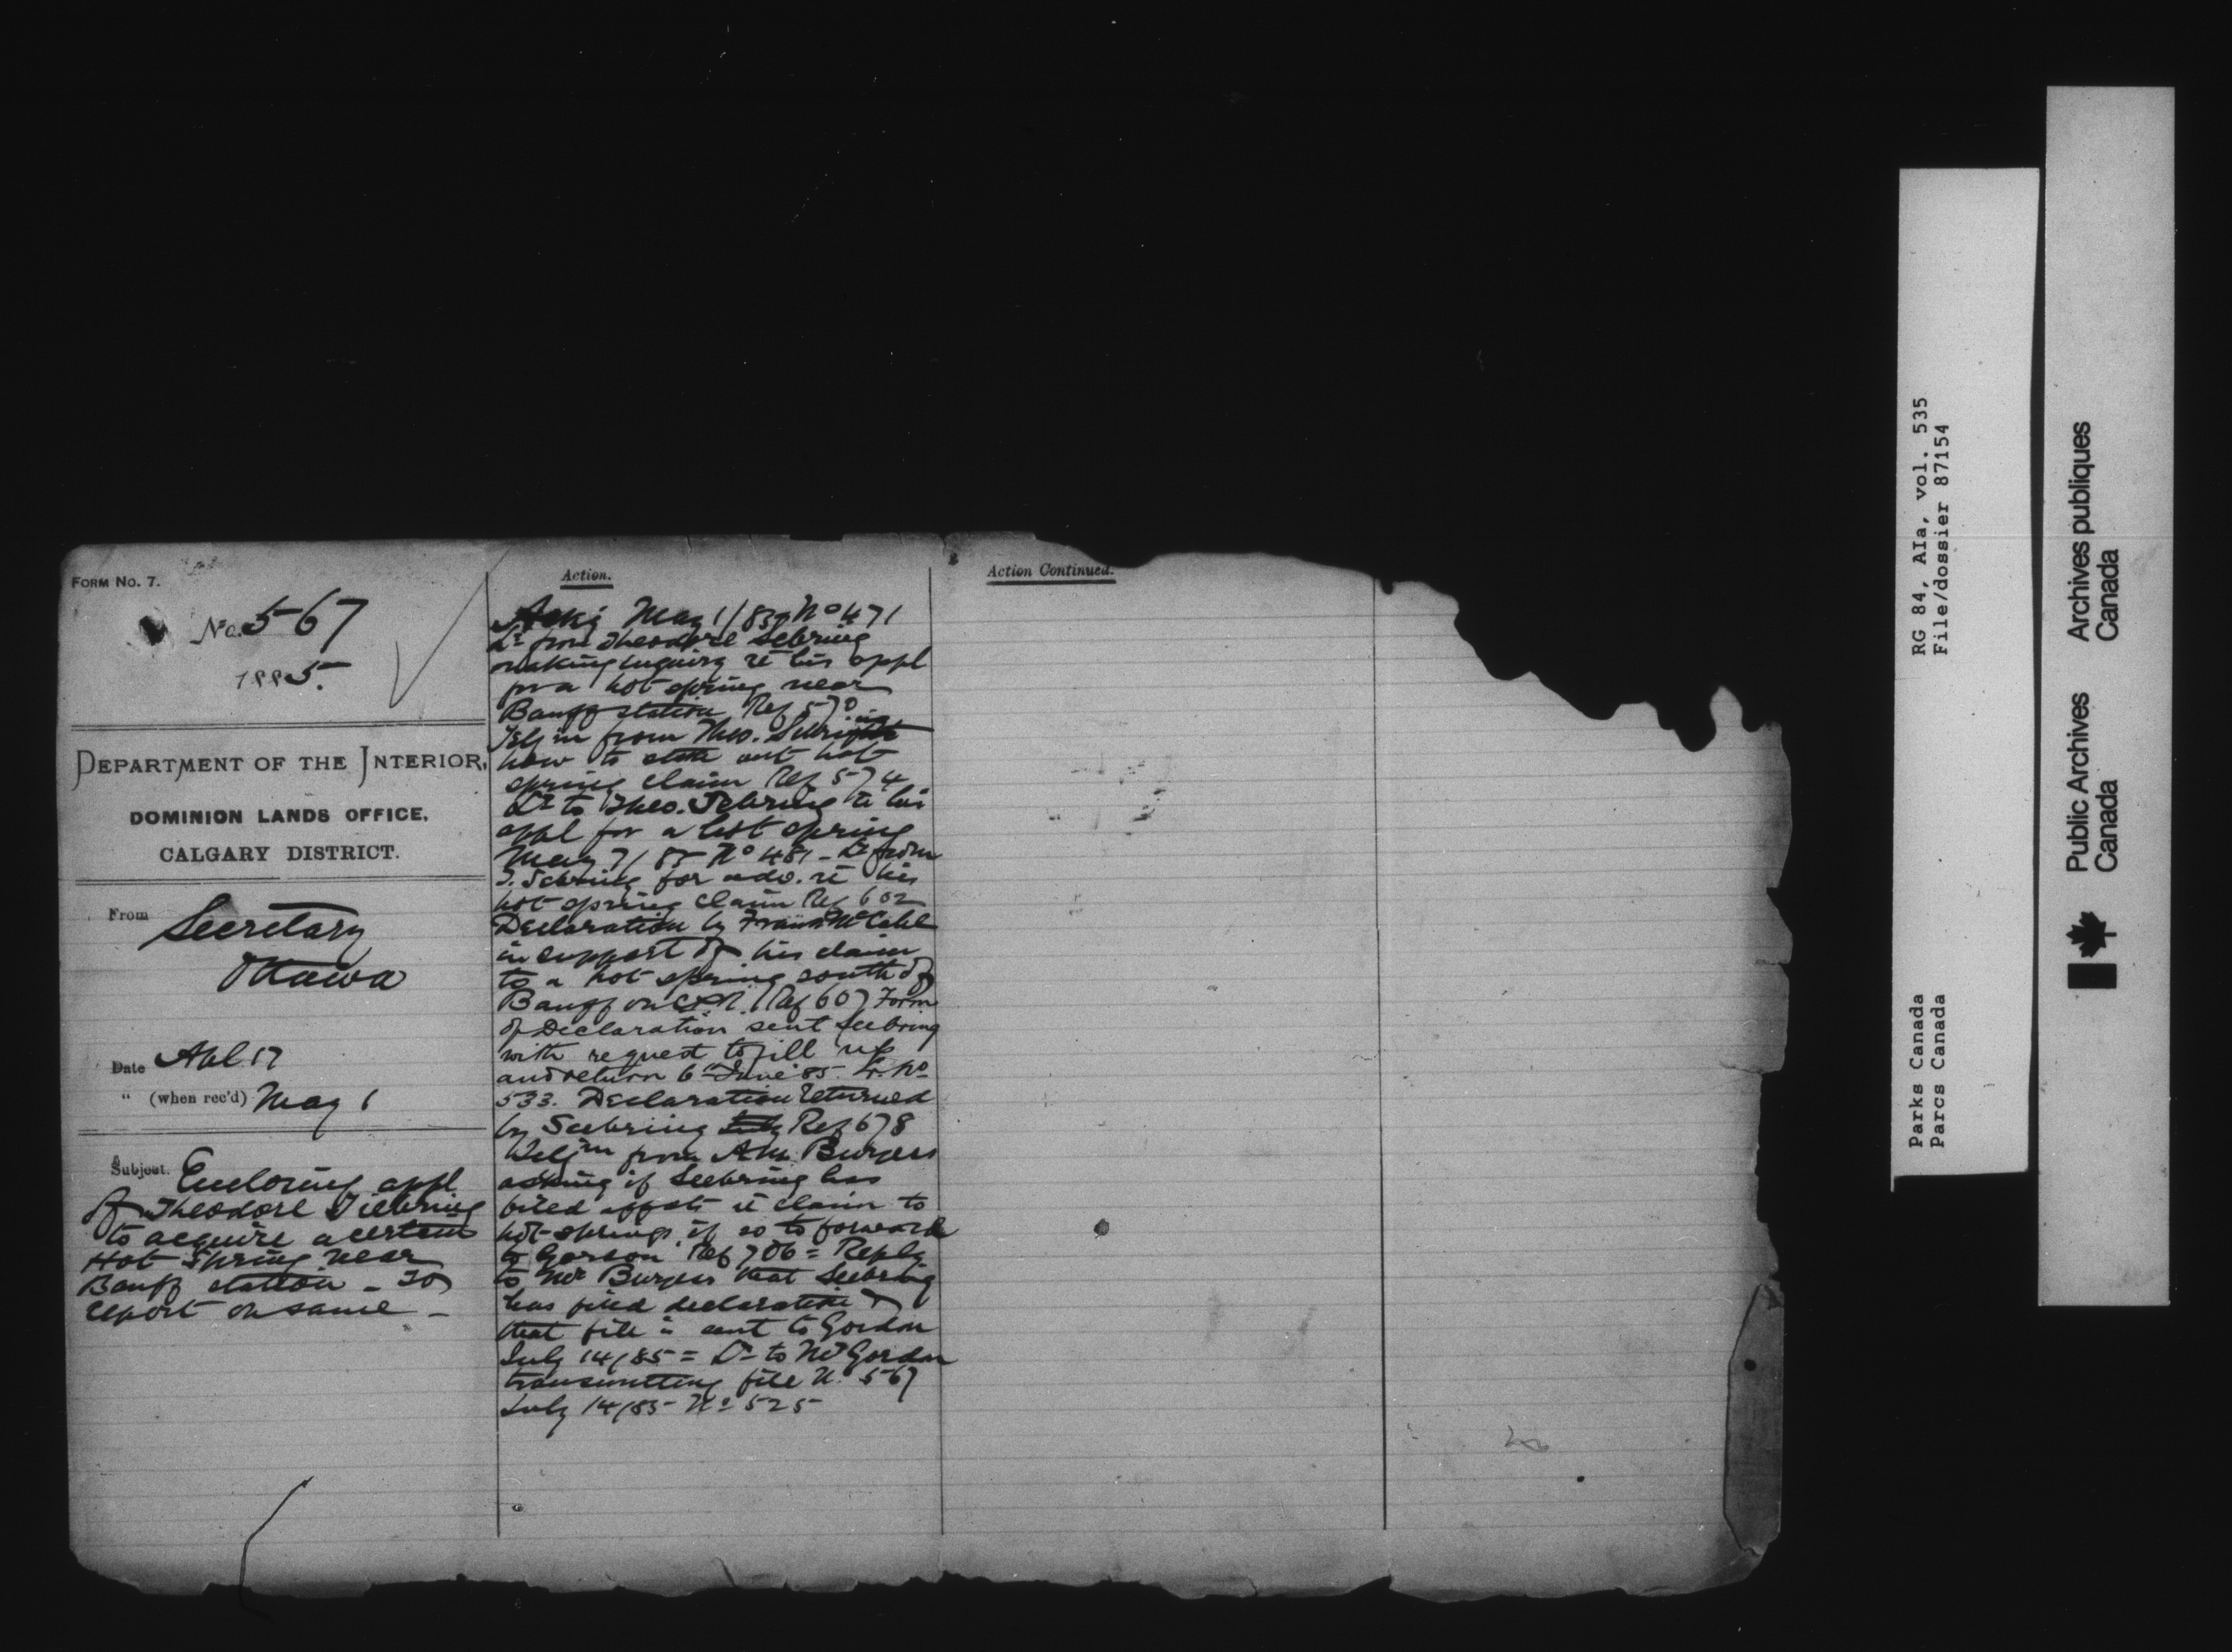 FORM No. 7.
No. 567
1885.
DEPARTMENT OF THE INTERIOR,
DOMINION LANDS OFFICE,
CALGARY DISTRICT.
From Secretary
Ottawa
Date Apl 17
" (when rec'd) May 1
Subject. Enclosing appl
of Theodore Siebring
to acquire a certain
Hot Spring near
Banff station - To
report on same -
Action.
Ackg May 1/85 No 471
Lr from Theodore Sebring
making inquiry re his appl
for a hot spring near
Banff station Ref 570
Telgm from Theo. Sebring
how to stake out hot
spring claim Ref 574
Lr to Theo. Sebring re his
appl for a hot spring
May 7/85 No 481 - Lr from
T. Sebring for adv. re his
hot spring claim Ref 602
Declaration by Frank McCabe
in support of his claim
to a hot spring south of
Banff on C.P.R. Ref 607 Form
of Declaration sent Seebring
with request to fill up
and return 6th June 85 Lr. No
533. Declaration returned
by Seebring Ref 678
Telgm from Burgess
asking if Seebring has
filed re claim to
hot-springs if so to forward
to Gordon Ref 706 = Reply
to Mr Burgess that Seebring
has filed declaration &
that file is sent to Gordon
July 14/85 = Lr to Mr Gordon
transmitting file No 567
July 14/85 No 525
Action Continued.
RG 84, AIa, vol. 535
File/dossier 87154
Parks Canada
Parcs Canada
Public Archives
Canada
Archives publiques
Canada